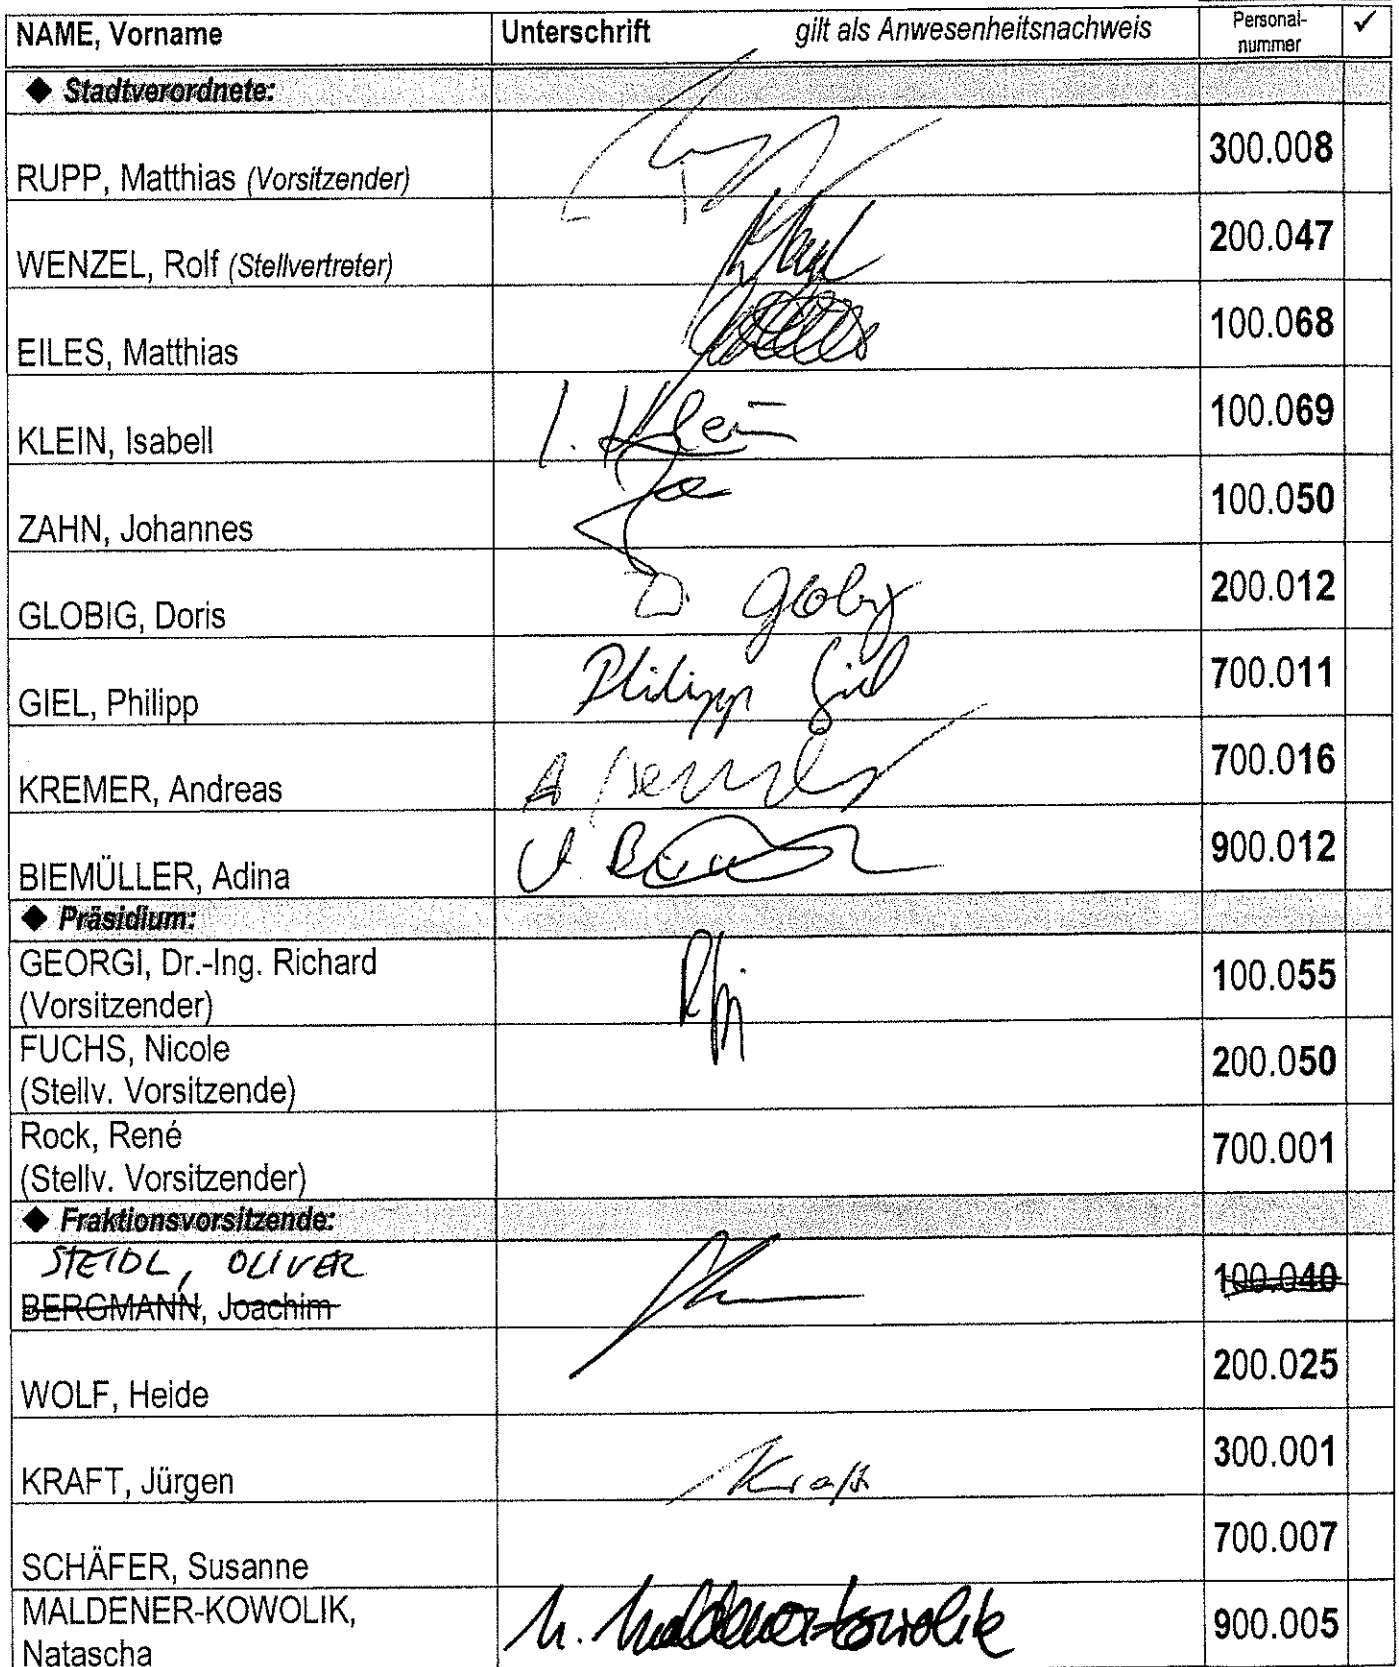 NAME, Vorname Unterschrift gilt als Anwesenheitsnachweis Personal-nummer ✓
◆ Stadtverordnete:
RUPP, Matthias (Vorsitzender) 300.008
WENZEL, Rolf (Stellvertreter) 200.047
EILES, Matthias 100.068
KLEIN, Isabell I. Klein 100.069
ZAHN, Johannes 100.050
GLOBIG, Doris D. Globig 200.012
GIEL, Philipp Philipp Giel 700.011
KREMER, Andreas A Kremer 700.016
BIEMÜLLER, Adina 900.012
◆ Präsidium:
GEORGI, Dr.-Ing. Richard
(Vorsitzender) 100.055
FUCHS, Nicole
(Stellv. Vorsitzende) 200.050
Rock, René
(Stellv. Vorsitzender) 700.001
◆ Fraktionsvorsitzende:
STEIDL, OLIVER
BERGMANN, Joachim 100.040
WOLF, Heide 200.025
KRAFT, Jürgen Kraft 300.001
SCHÄFER, Susanne 700.007
MALDENER-KOWOLIK,
Natascha N. Maldener-Kowolik 900.005